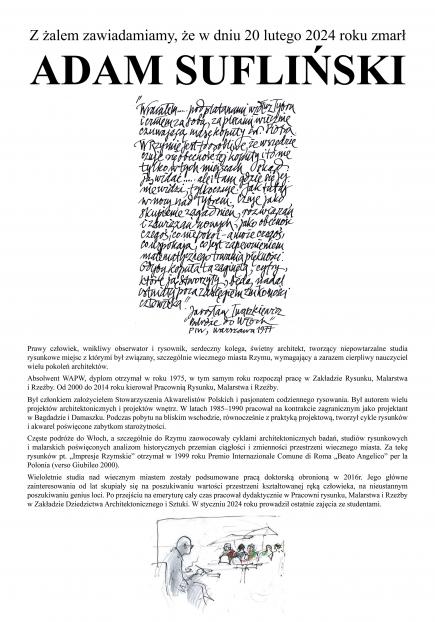 Z żalem zawiadamiamy, że w dniu 20 lutego 2024 roku zmarł
ADAM SUFLIŃSKI
"Wracałem.... pod platanami wzdłuż Tybru
i czułem za sobą, za plecami wieczne
czuwającą masę kopuły św. Piotra.
W Rzymie jest dotkliwe, że wszędzie
czuje się obecność tej kopuły i to nie
tylko w tych miejscach skąd
ją widać .... ale i tam gdzie się jej
nie widzi, tylko czuje. Jak tutaj
w nocy nad Tybrem. Czuje jako
skupienie zagadnień, rozwiązań
i zawiązań nowych, jako obecność
czegoś, co niepokoi - a może czegoś,
co uspokaja, co jest zapewnieniem
matematycznego trwania piękności.
Gdyby kopuła ta zaginęła, cyfry,
które ją stworzyły, będą nadal
istniały poza zasięgiem znikomości
człowieka"
Jarosław Iwaszkiewicz
"Podróże do Włoch"
PIW, Warszawa 1977
Prawy człowiek, wnikliwy obserwator i rysownik, serdeczny kolega, świetny architekt, tworzący niepowtarzalne studia
rysunkowe miejsc z którymi był związany, szczególnie wiecznego miasta Rzymu, wymagający a zarazem cierpliwy nauczyciel
wielu pokoleń architektów.
Absolwent WAPW, dyplom otrzymał w roku 1975, w tym samym roku rozpoczął pracę w Zakładzie Rysunku, Malarstwa
i Rzeźby. Od 2000 do 2014 roku kierował Pracownią Rysunku, Malarstwa i Rzeźby.
Był członkiem założycielem Stowarzyszenia Akwarelistów Polskich i pasjonatem codziennego rysowania. Był autorem wielu
projektów architektonicznych i projektów wnętrz. W latach 1985–1990 pracował na kontrakcie zagranicznym jako projektant
w Bagdadzie i Damaszku. Podczas pobytu na bliskim wschodzie, równocześnie z praktyką projektową, tworzył cykle rysunków
i akwarel poświęcone zabytkom starożytności.
Częste podróże do Włoch, a szczególnie do Rzymu zaowocowały cyklami architektonicznych badań, studiów rysunkowych
i malarskich poświęconych analizom historycznych przemian ciągłości i zmienności przestrzeni wiecznego miasta. Za tekę
rysunków pt. „Impresje Rzymskie” otrzymał w 1999 roku Premio Internazionale Comune di Roma „Beato Angelico” per la
Polonia (verso Giubileo 2000).
Wieloletnie studia nad wiecznym miastem zostały podsumowane pracą doktorską obronioną w 2016r. Jego główne
zainteresowania od lat skupiały się na poszukiwaniu wartości przestrzeni kształtowanej ręką człowieka, na nieustannym
poszukiwaniu genius loci. Po przejściu na emeryturę cały czas pracował dydaktycznie w Pracowni rysunku, Malarstwa i Rzeźby
w Zakładzie Dziedzictwa Architektonicznego i Sztuki. W styczniu 2024 roku prowadził ostatnie zajęcia ze studentami.